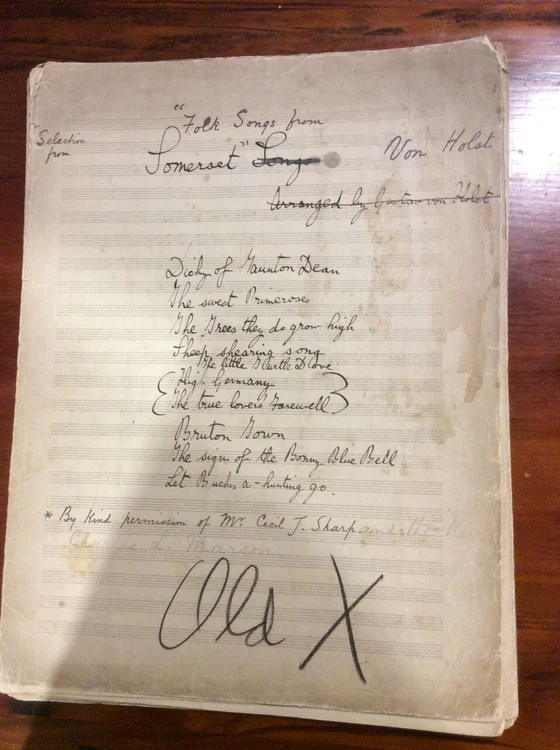 "Folk Songs from
Selection
from
Somerset" Songs
Von Holst
Arranged by Gustav von Holst
Dicky of Taunton Dean
The sweet Primeroses
The Trees they do grow high
Sheep shearing song
The little Turtle Dove
High Germany
The true lovers Farewell
Bruton Town
The sign of the Bonny Blue Bell
Let Bucks a-hunting go.
* By Kind permission of Mr. Cecil J. Sharp and
Charles L. Marson
Old X